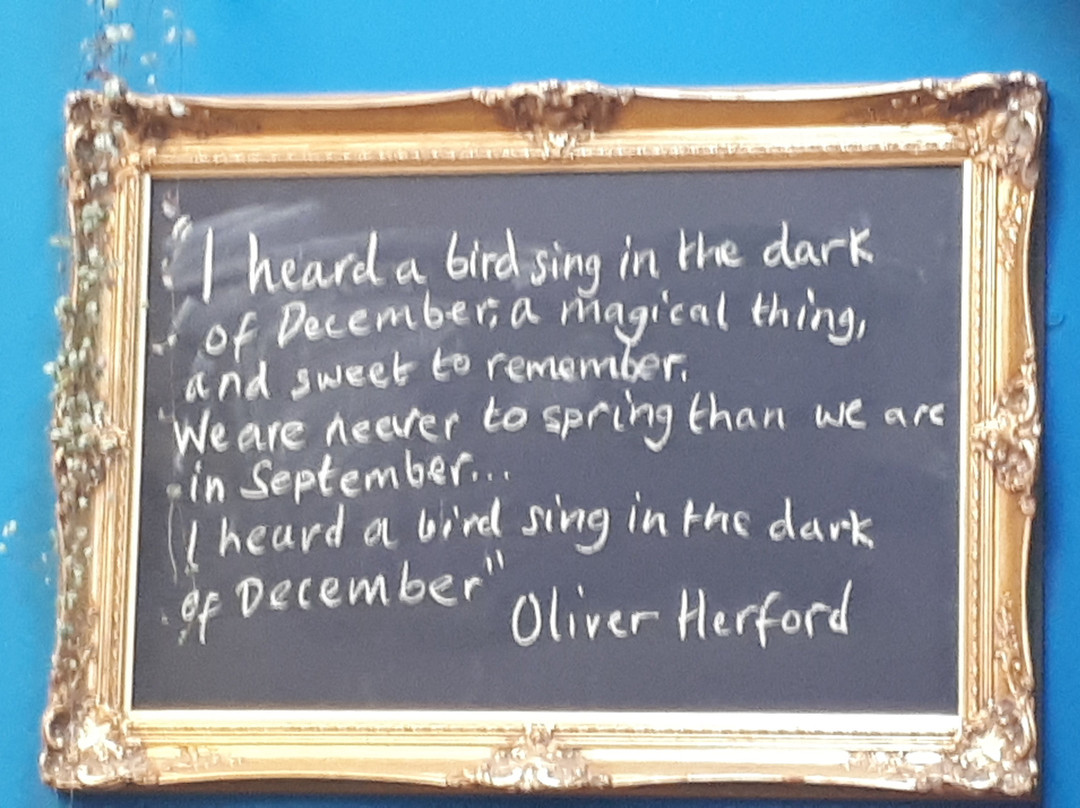 "I heard a bird sing in the dark
of December; a magical thing,
and sweet to remember.
We are nearer to spring than we are
in September...
I heard a bird sing in the dark
of December"
Oliver Herford